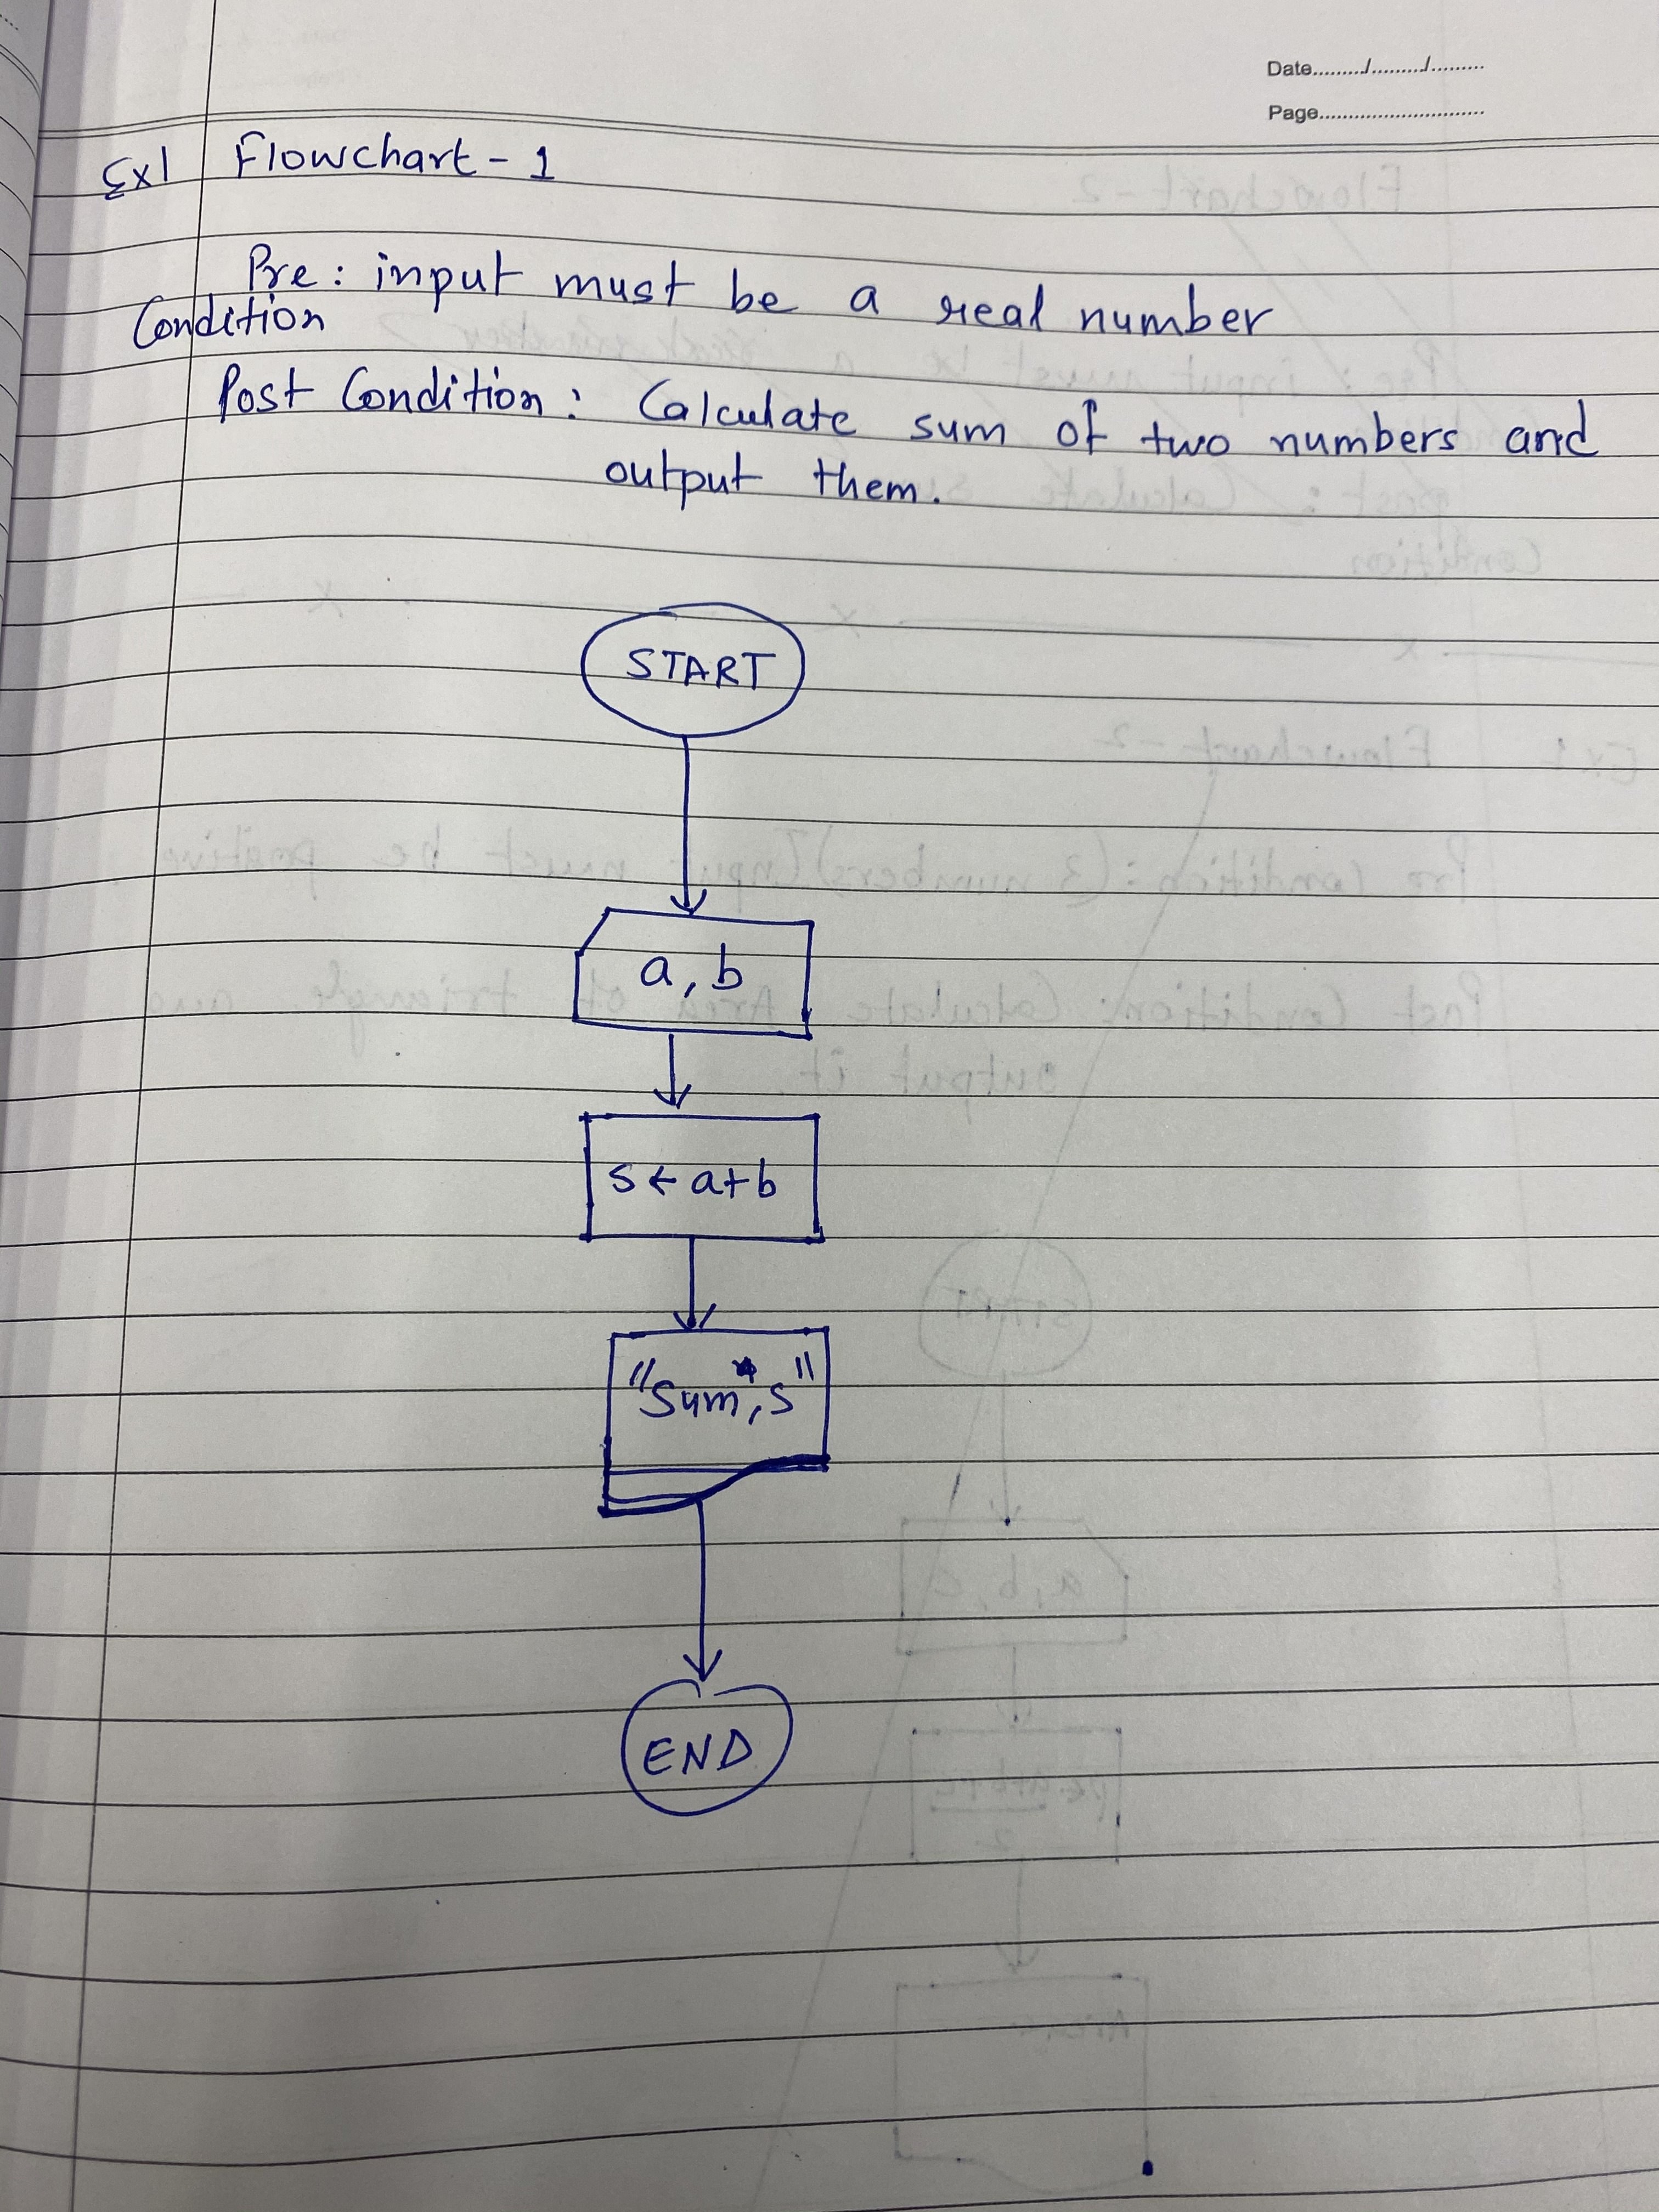 Date........./........./.........
Page............................
Ex1 Flowchart - 1
Pre : input must be a real number
Condition
Post Condition : Calculate sum of two numbers and
output them.
START
a, b
s ← a+b
"Sum, s"
END